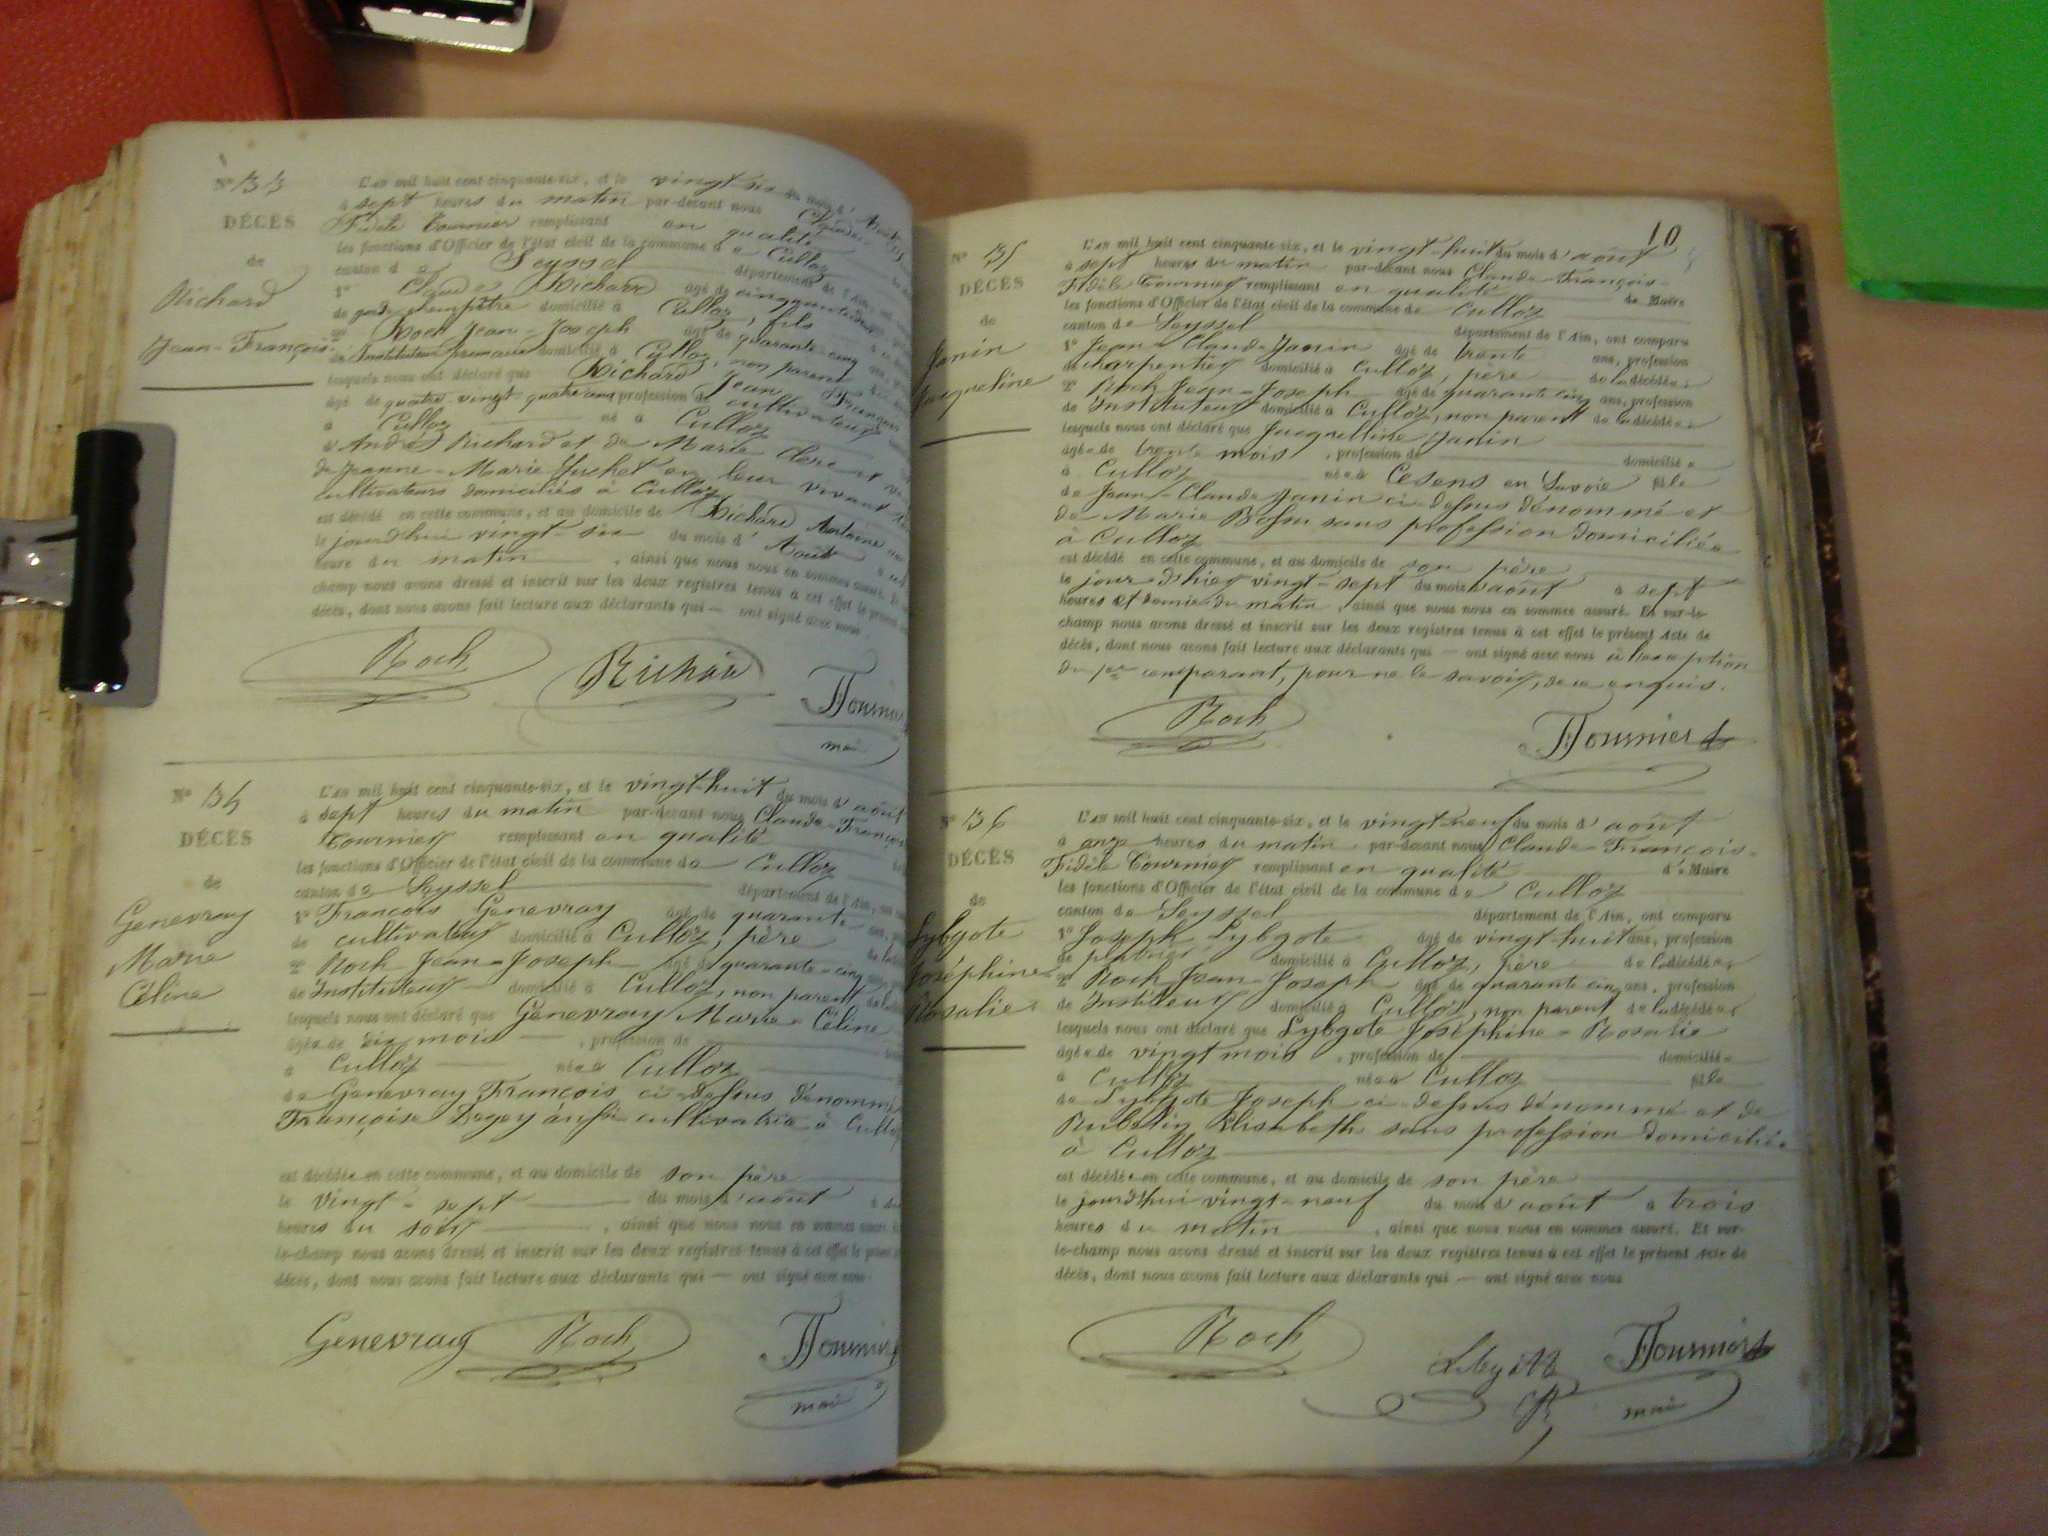 N° 33
DÉCÈS
de
Richard
Jean-François
L'an mil huit cent cinquante-six, et le vingt-six du mois d'Août
à sept heures du matin par-devant nous Claude
Fidèle Tournier remplissant en qualité
les fonctions d'Officier de l'état civil de la commune de Culloz
canton de Seyssel département de l'Ain
1° Claude Richard âgé de
de domicilié à Culloz, fils
Roch Jean-Joseph âgé de quarante-cinq
de Instituteur primaire domicilié à Culloz, non parent
lesquels nous ont déclaré que Richard Jean François
âgé de quatre-vingt quatre ans profession de cultivateur
à Culloz né à Culloz
d'André Richard et de Marie Clerc et
de Jeanne-Marie en leur vivant
cultivateurs domiciliés à Culloz
est décédé en cette commune, et au domicile de Richard Antoine
le jourd'hui vingt-six du mois d'Août à
heure du matin, ainsi que nous nous en sommes assuré.
champ nous avons dressé et inscrit sur les deux registres tenus à cet effet le présent
décès, dont nous avons fait lecture aux déclarants qui — ont signé avec nous.
Roch Richard Tournier
maire
N° 34
DÉCÈS
de
Genevray
Marie
Céline
L'an mil huit cent cinquante-six, et le vingt-huit du mois d'août
à sept heures du matin par-devant nous Claude-François
Tournier remplissant en qualité
les fonctions d'Officier de l'état civil de la commune de Culloz
canton de Seyssel département de l'Ain,
1° François Genevray âgé de quarante
de cultivateur domicilié à Culloz, père
2° Roch Jean-Joseph âgé de quarante-cinq
de Instituteur domicilié à Culloz, non parent
lesquels nous ont déclaré que Genevray Marie-Céline
âgée de mois, profession de
à Culloz née à Culloz
de Genevray François ci-dessus dénommé
Françoise cultivatrice à Culloz
est décédée en cette commune, et au domicile de son père
le vingt-sept du mois d'août à
heures du soir, ainsi que nous nous en sommes
le-champ nous avons dressé et inscrit sur les deux registres tenus à cet effet le présent
décès, dont nous avons fait lecture aux déclarants qui — ont signé avec nous.
Genevray Roch Tournier
maire
10
N° 35
DÉCÈS
de
Janin
Jacqueline
L'an mil huit cent cinquante-six, et le vingt-huit du mois d'août
à sept heures du matin par-devant nous Claude-François-
Fidèle Tournier remplissant en qualité de Maire
les fonctions d'Officier de l'état civil de la commune de Culloz
canton de Seyssel département de l'Ain, ont comparu
1° Jean-Claude Janin âgé de trente ans, profession
de charpentier domicilié à Culloz, père de la décédée;
2° Roch Jean-Joseph âgé de quarante cinq ans, profession
de Instituteur domicilié à Culloz, non parent de la décédée;
lesquels nous ont déclaré que Jacquelline Janin
âgée de trente mois, profession de domiciliée
à Culloz née à Cesens en Savoie fille
de Jean-Claude Janin ci-dessus dénommé et
de Marie sans profession domiciliée
à Culloz
est décédé en cette commune, et au domicile de son père
le jour d'hier vingt-sept du mois d'août à sept
heures et demie du matin, ainsi que nous nous en sommes assuré. Et sur-le-
champ nous avons dressé et inscrit sur les deux registres tenus à cet effet le présent Acte de
décès, dont nous avons fait lecture aux déclarants qui — ont signé avec nous à l'exception
du 1er comparant, pour ne le savoir, de ce enquis.
Roch Tournier
N° 36
DÉCÈS
de
Lybgote
Joséphine
Rosalie
L'an mil huit cent cinquante-six, et le vingt-neuf du mois d'août
à onze heures du matin par-devant nous Claude-François-
Fidèle Tournier remplissant en qualité de Maire
les fonctions d'Officier de l'état civil de la commune de Culloz
canton de Seyssel département de l'Ain, ont comparu
1° Joseph Lybgote âgé de vingt-huit ans, profession
de domicilié à Culloz, père de la décédée;
2° Roch Jean-Joseph âgé de quarante cinq ans, profession
de Instituteur domicilié à Culloz, non parent de la décédée;
lesquels nous ont déclaré que Lybgote Joséphine-Rosalie
âgée de vingt mois, profession de domiciliée
à Culloz née à Culloz fille
de Lybgote Joseph ci-dessus dénommé et de
Elisabeth sans profession domiciliée
à Culloz
est décédée en cette commune, et au domicile de son père
le jourd'hui vingt-neuf du mois d'août à trois
heures du matin, ainsi que nous nous en sommes assuré. Et sur-
le-champ nous avons dressé et inscrit sur les deux registres tenus à cet effet le présent Acte de
décès, dont nous avons fait lecture aux déclarants qui — ont signé avec nous
Roch Tournier
maire